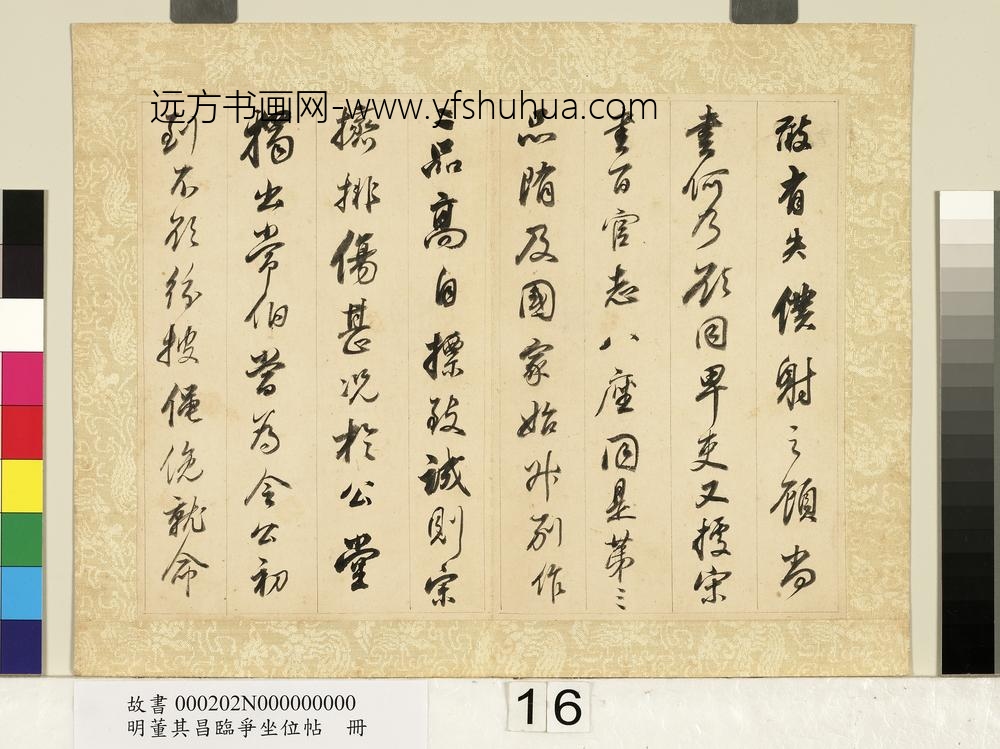 远方书画网-www.yfshuhua.com
敢有失僕射之顧尚
書何乃欲同卑吏又據宋
書百官志八座同是第三
品隋及國家始升別作
二品高自標致誠則崇
擠排傷甚況於公堂
獨出常伯當為令公初
到不欲紛披僶俛就命
故書 000202N000000000
明董其昌臨爭坐位帖 冊
16